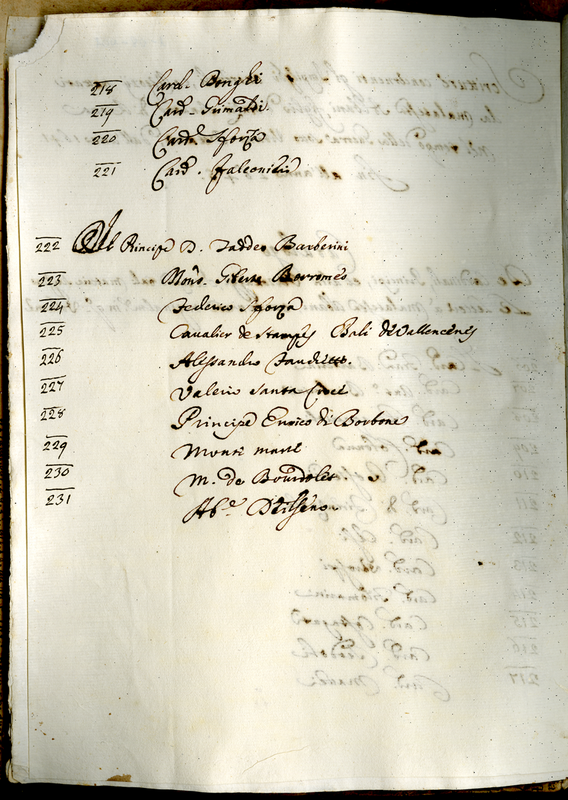 218 Card. Bonghi
219 Card. Grimaldi
220 Card. Sforza
221 Card. Falconieri
222 Il Principe D. Taddeo Barberini
223 Mons. Giberto Borromeo
224 Federico Sforza
225 Cavalier de Stampes Balì de Vallencenes
226 Alessandro
227 Valerio Santa Croce
228 Principe Enrico di Borbone
229 Monti marte
230 M. de Bourdolet.
231 Ab.e